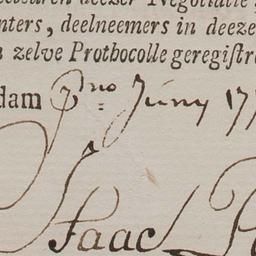 deezer Negotiatie
nters, deelneemers in deeze
zelve Prothocolle geregiſtr
dam Pmo Juny 177
Isaac